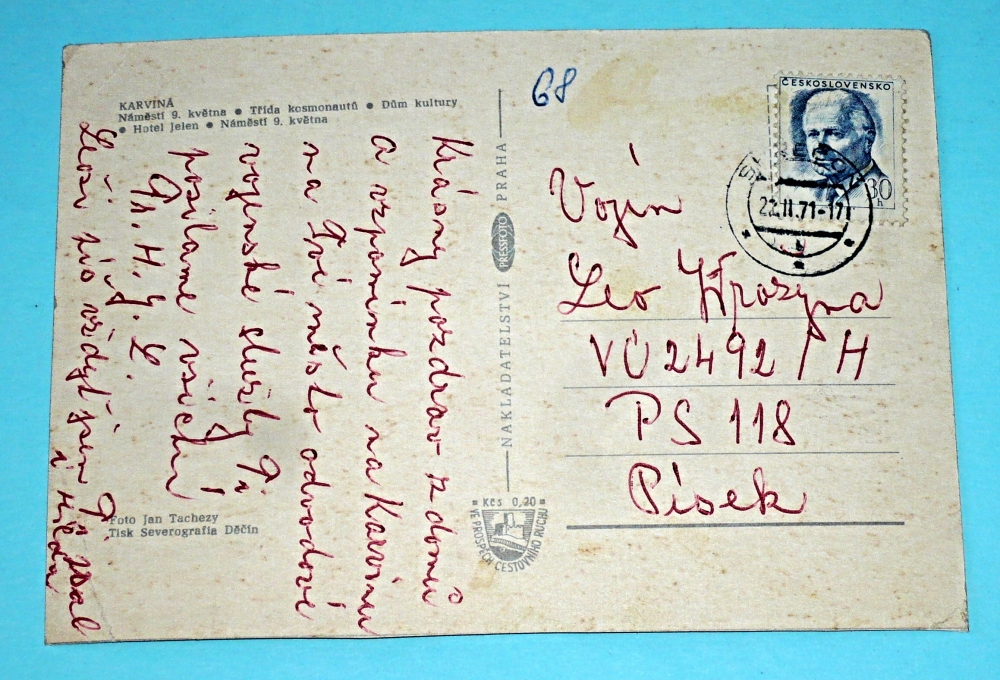 KARVINÁ
Náměstí 9. května • Třída kosmonautů • Dům kultury
• Hotel Jelen • Náměstí 9. května
Krásný pozdrav z domů
a vzpomínku na Karvinu
na Tvé město odvodové
vojenské služby Ti
posílame všichni
Leoši
vždyť jsem Ti psal
i Héda
Foto Jan Tachezy
Tisk Severografia Děčín
NAKLADATELSTVÍ PRESSFOTO PRAHA
Kčs 0,20
VE PROSPĚCH CESTOVNÍHO RUCHU
68
ČESKOSLOVENSKO
30
h
II.71-17
Vojín
Leo
VÚ 2492/H
PS 118
Písek